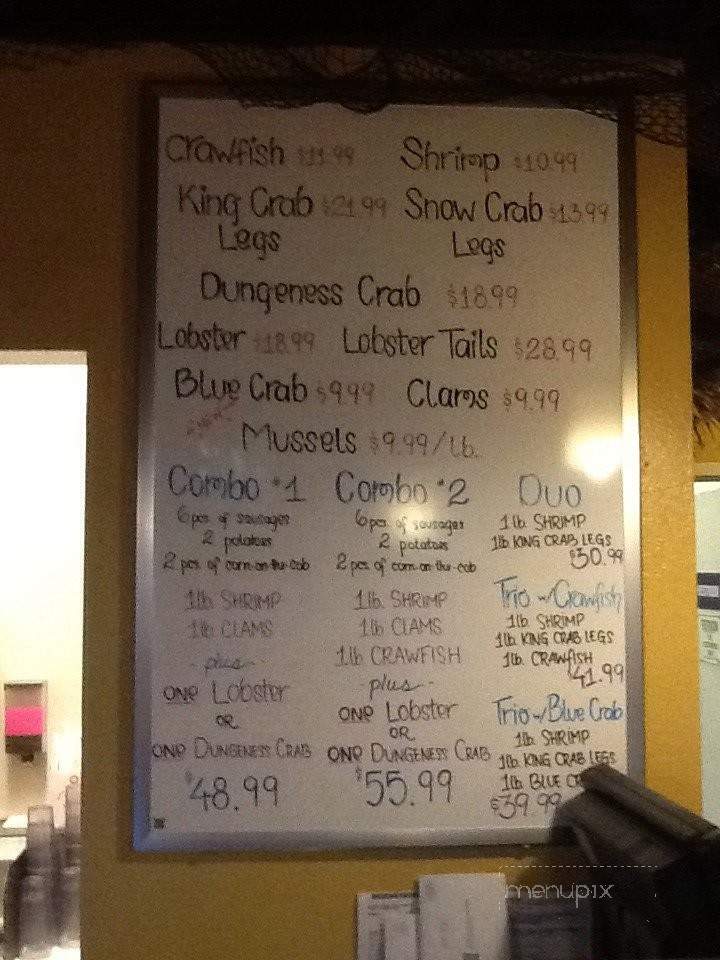 Crawfish $11.99 Shrimp $10.99
King Crab $21.99 Snow Crab $13.99
Legs Legs
Dungeness Crab $18.99
Lobster $18.99 Lobster Tails $28.99
Blue Crab $9.99 Clams $9.99
Mussels $9.99/lb.
Combo #1
6pcs. of sausages
2 potatoes
2 pcs. of corn-on-the-cob
1lb SHRIMP
1lb CLAMS
-plus-
ONE Lobster
OR
ONE DUNGENESS CRAB
$48.99
Combo #2
6pcs. of sausages
2 potatoes
2 pcs. of corn-on-the-cob
1lb. SHRIMP
1lb CLAMS
1lb CRAWFISH
-plus-
ONE Lobster
OR
ONE DUNGENESS CRAB
$55.99
Duo
1lb. SHRIMP
1lb KING CRAB LEGS
$30.99
Trio w/Crawfish
1lb. SHRIMP
1lb KING CRAB LEGS
1lb. CRAWfISH
$41.99
Trio w/Blue Crab
1lb. SHRIMP
1lb KING CRAB LEGS
1lb BLUE
$39.99
menupix